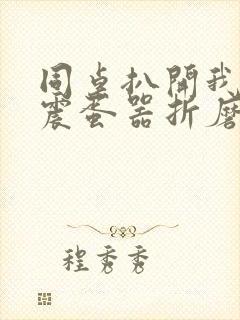 同桌扒開我
震蛋器折磨
程秀秀